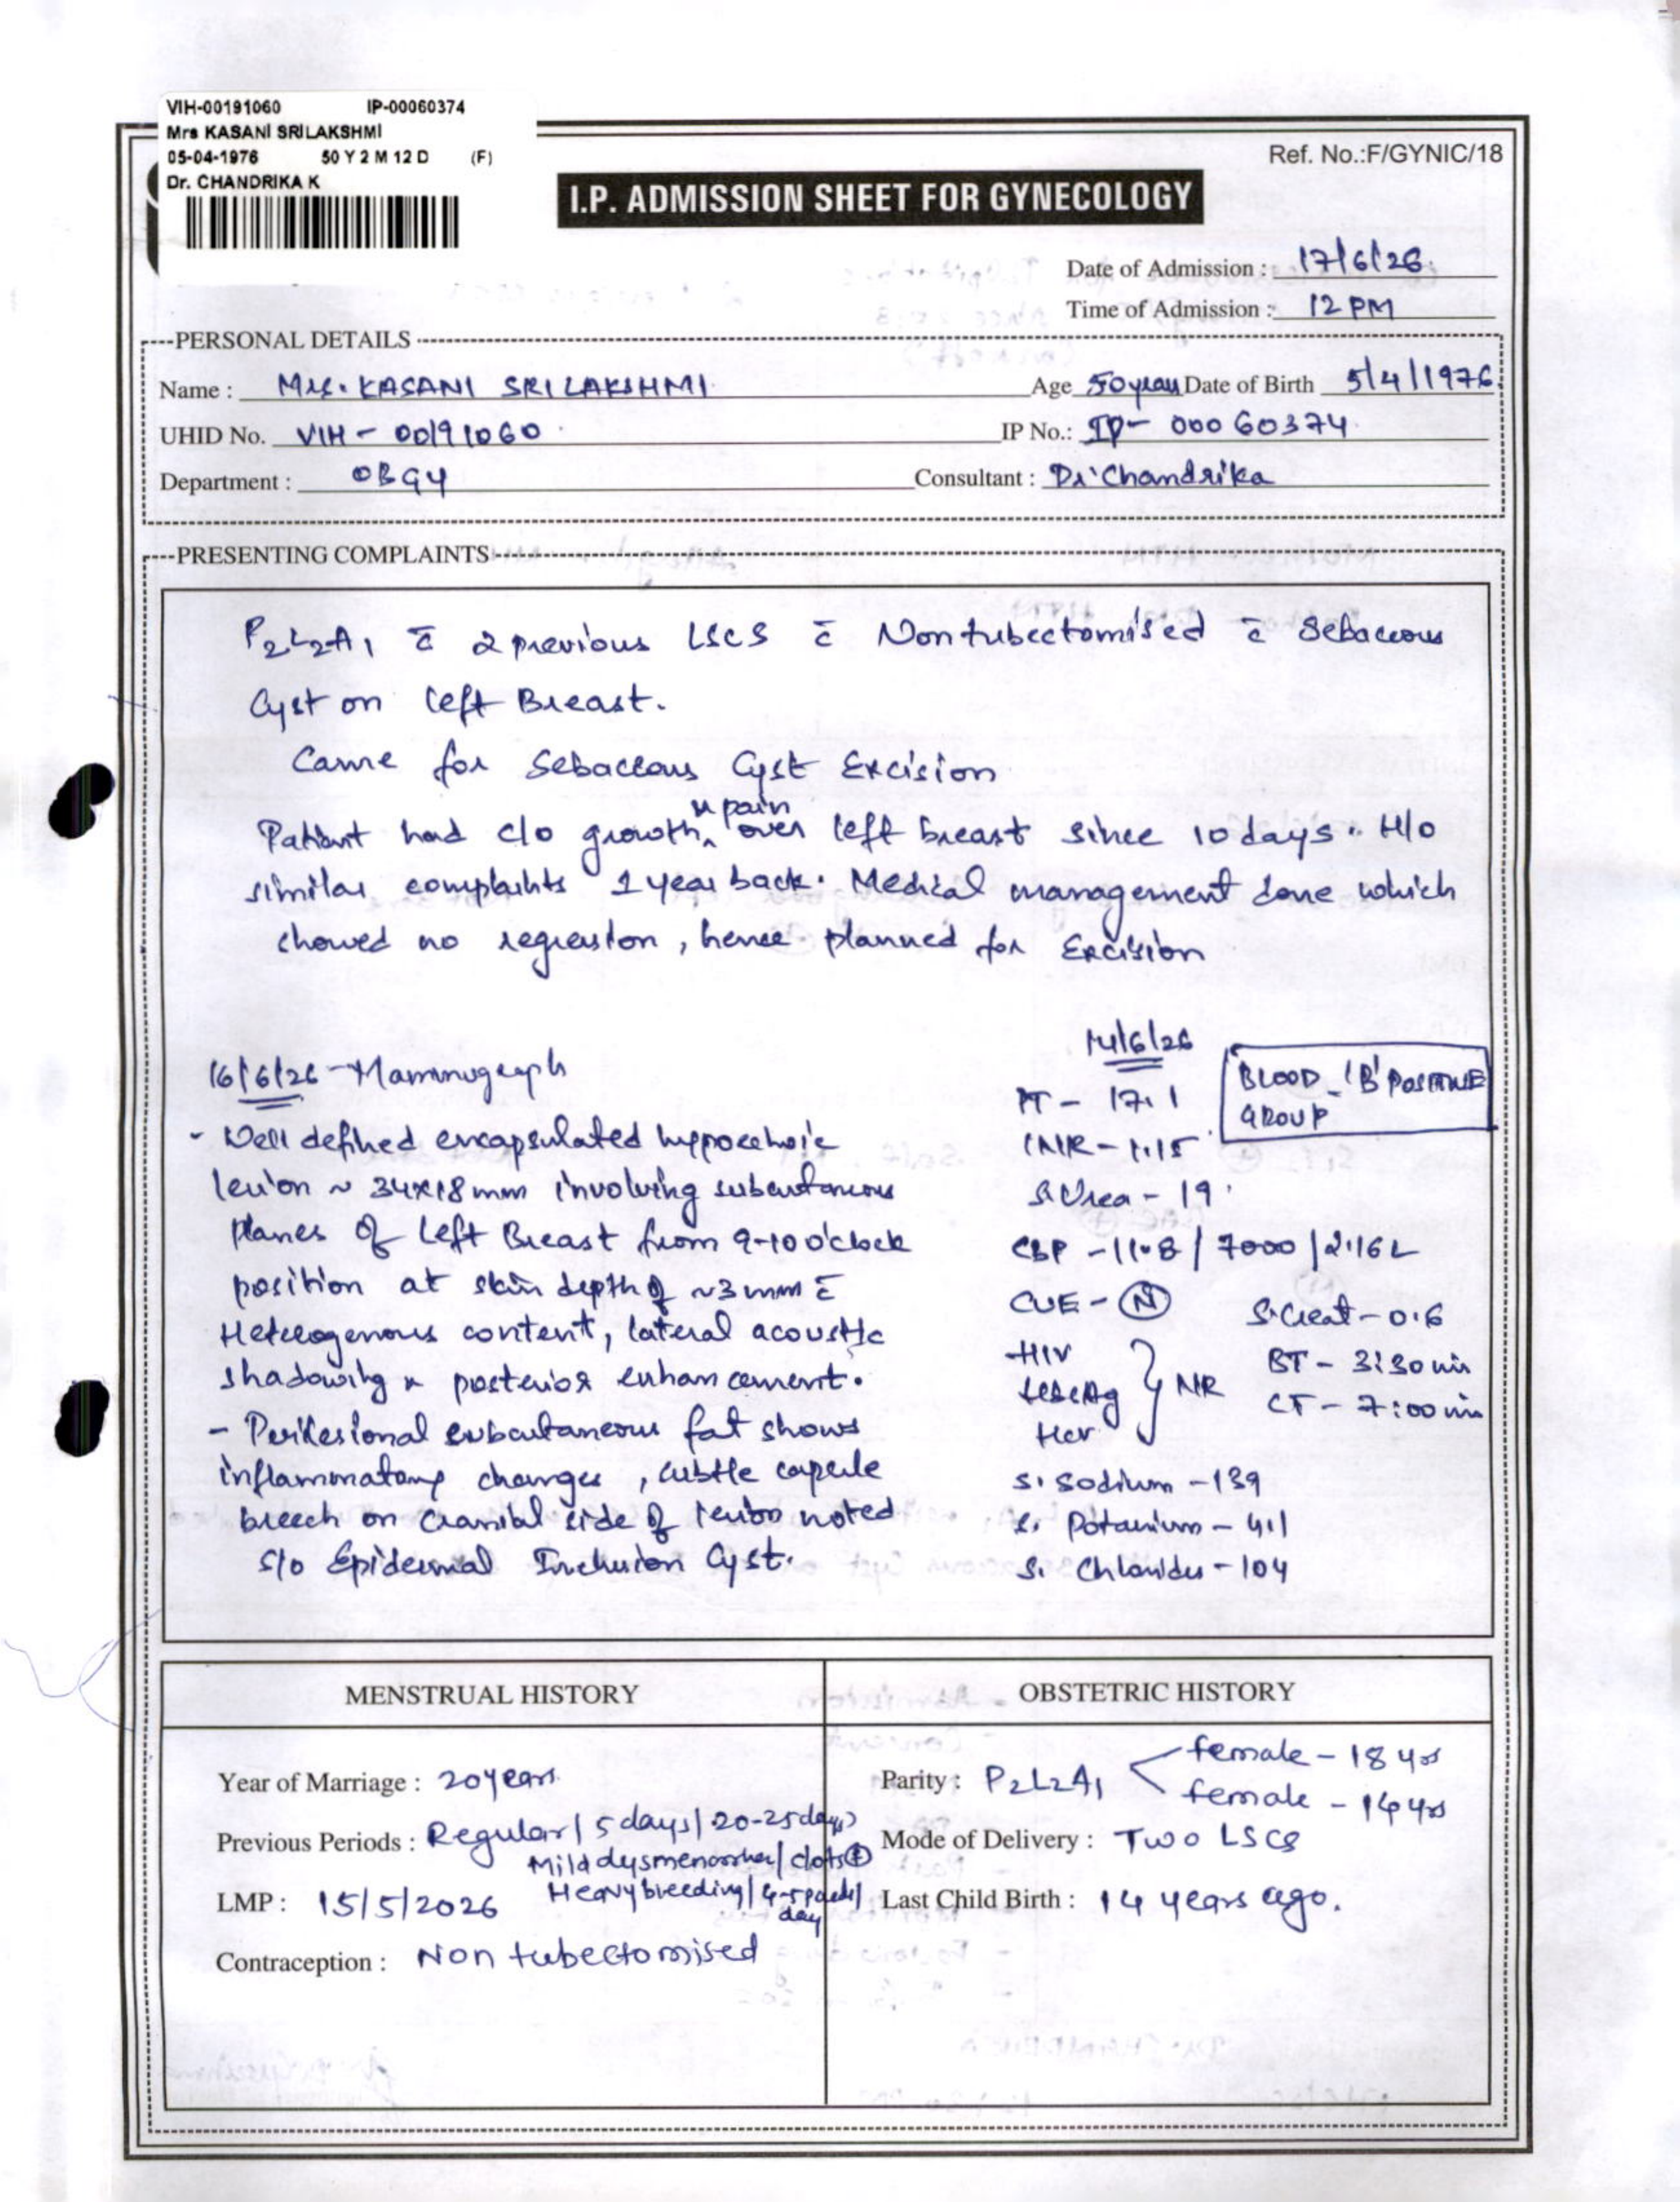 VIH-00191060 IP-00060374
Mrs KASANI SRILAKSHMI
05-04-1976 50 Y 2 M 12 D (F)
Dr. CHANDRIKA K
Ref. No.:F/GYNIC/18
I.P. ADMISSION SHEET FOR GYNECOLOGY
Date of Admission : 17/6/26.
Time of Admission : 12 PM
PERSONAL DETAILS
Name : Mrs. KASANI SRILAKSHMI Age 50 years Date of Birth 5/4/1976
UHID No. VIH - 00191060 IP No.: IP- 00060374
Department : OBGY Consultant : Dr Chandrika
PRESENTING COMPLAINTS
P2L2A1 c̄ 2 previous LSCS c̄ Nontubectomised c̄ Sebaceous
Cyst on left Breast.
Came for Sebaceous Cyst Excision
Patient had c/o growth & pain over left breast since 10 days. H/o
similar complaints 1 year back. Medical management done which
showed no regression, hence planned for Excision
16/6/26 - Mammograph
- Well defined encapsulated hypoechoic
lesion ~ 34x18mm involving subcutaneous
planes of left Breast from 9-10 o'clock
position at skin depth of ~3mm c̄
Heterogenous content, lateral acoustic
shadowing & posterior enhancement.
- Perilesional subcutaneous fat shows
inflammatory changes, subtle capsule
breech on cranial side of lesion noted
s/o Epidermal Inclusion Cyst.
14/6/26
PT - 17.1
INR - 1.15
S. Urea - 19
CBP - 11.8 / 7000 / 2.16 L
CUE - (N)
HIV
HBsAg } NR
HCV
S. Sodium - 139
S. Potassium - 4.1
S. Chlorides - 104
BLOOD - 'B' POSITIVE
GROUP
S. Creat - 0.6
BT - 3:30 min
CT - 7:00 min
MENSTRUAL HISTORY
Year of Marriage : 20 years
Previous Periods : Regular / 5 days / 20-25 days
Mild dysmenorrhea / clots
Heavy breeding / 4-5 pads /
day
LMP : 15/5/2026
Contraception : Non tubectomised
OBSTETRIC HISTORY
Parity : P2L2A1 female - 18 yrs
female - 14 yrs
Mode of Delivery : Two LSCS
Last Child Birth : 14 years ago.